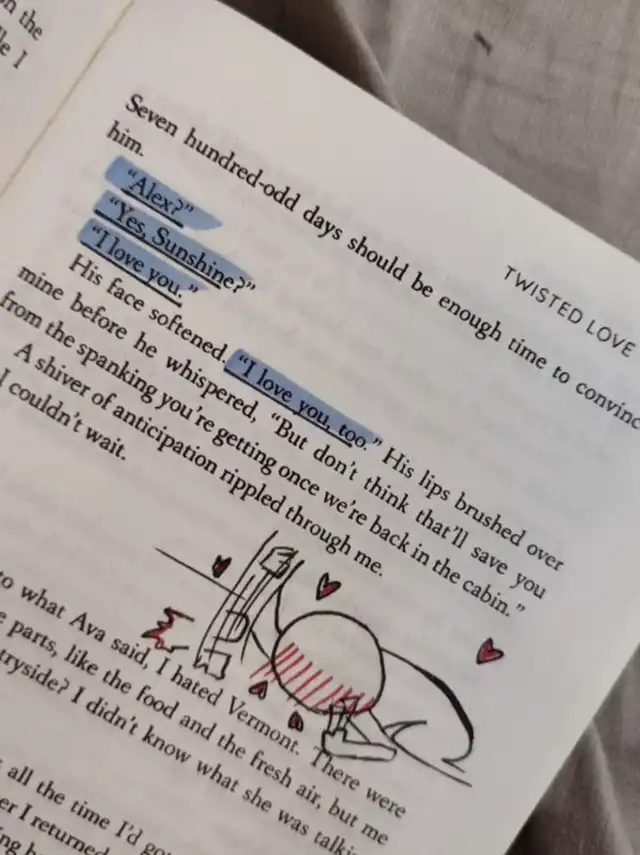 on the
TWISTED LOVE
Seven hundred-odd days should be enough time to convinc
him.
"Alex?"
"Yes, Sunshine?"
"I love you."
His face softened. "I love you, too." His lips brushed over
mine before he whispered, "But don't think that'll save you
from the spanking you're getting once we're back in the cabin."
A shiver of anticipation rippled through me.
I couldn't wait.
to what Ava said, I hated Vermont. There were
parts, like the food and the fresh air, but me
tryside? I didn't know what she was talki
all the time I'd go
er I returned